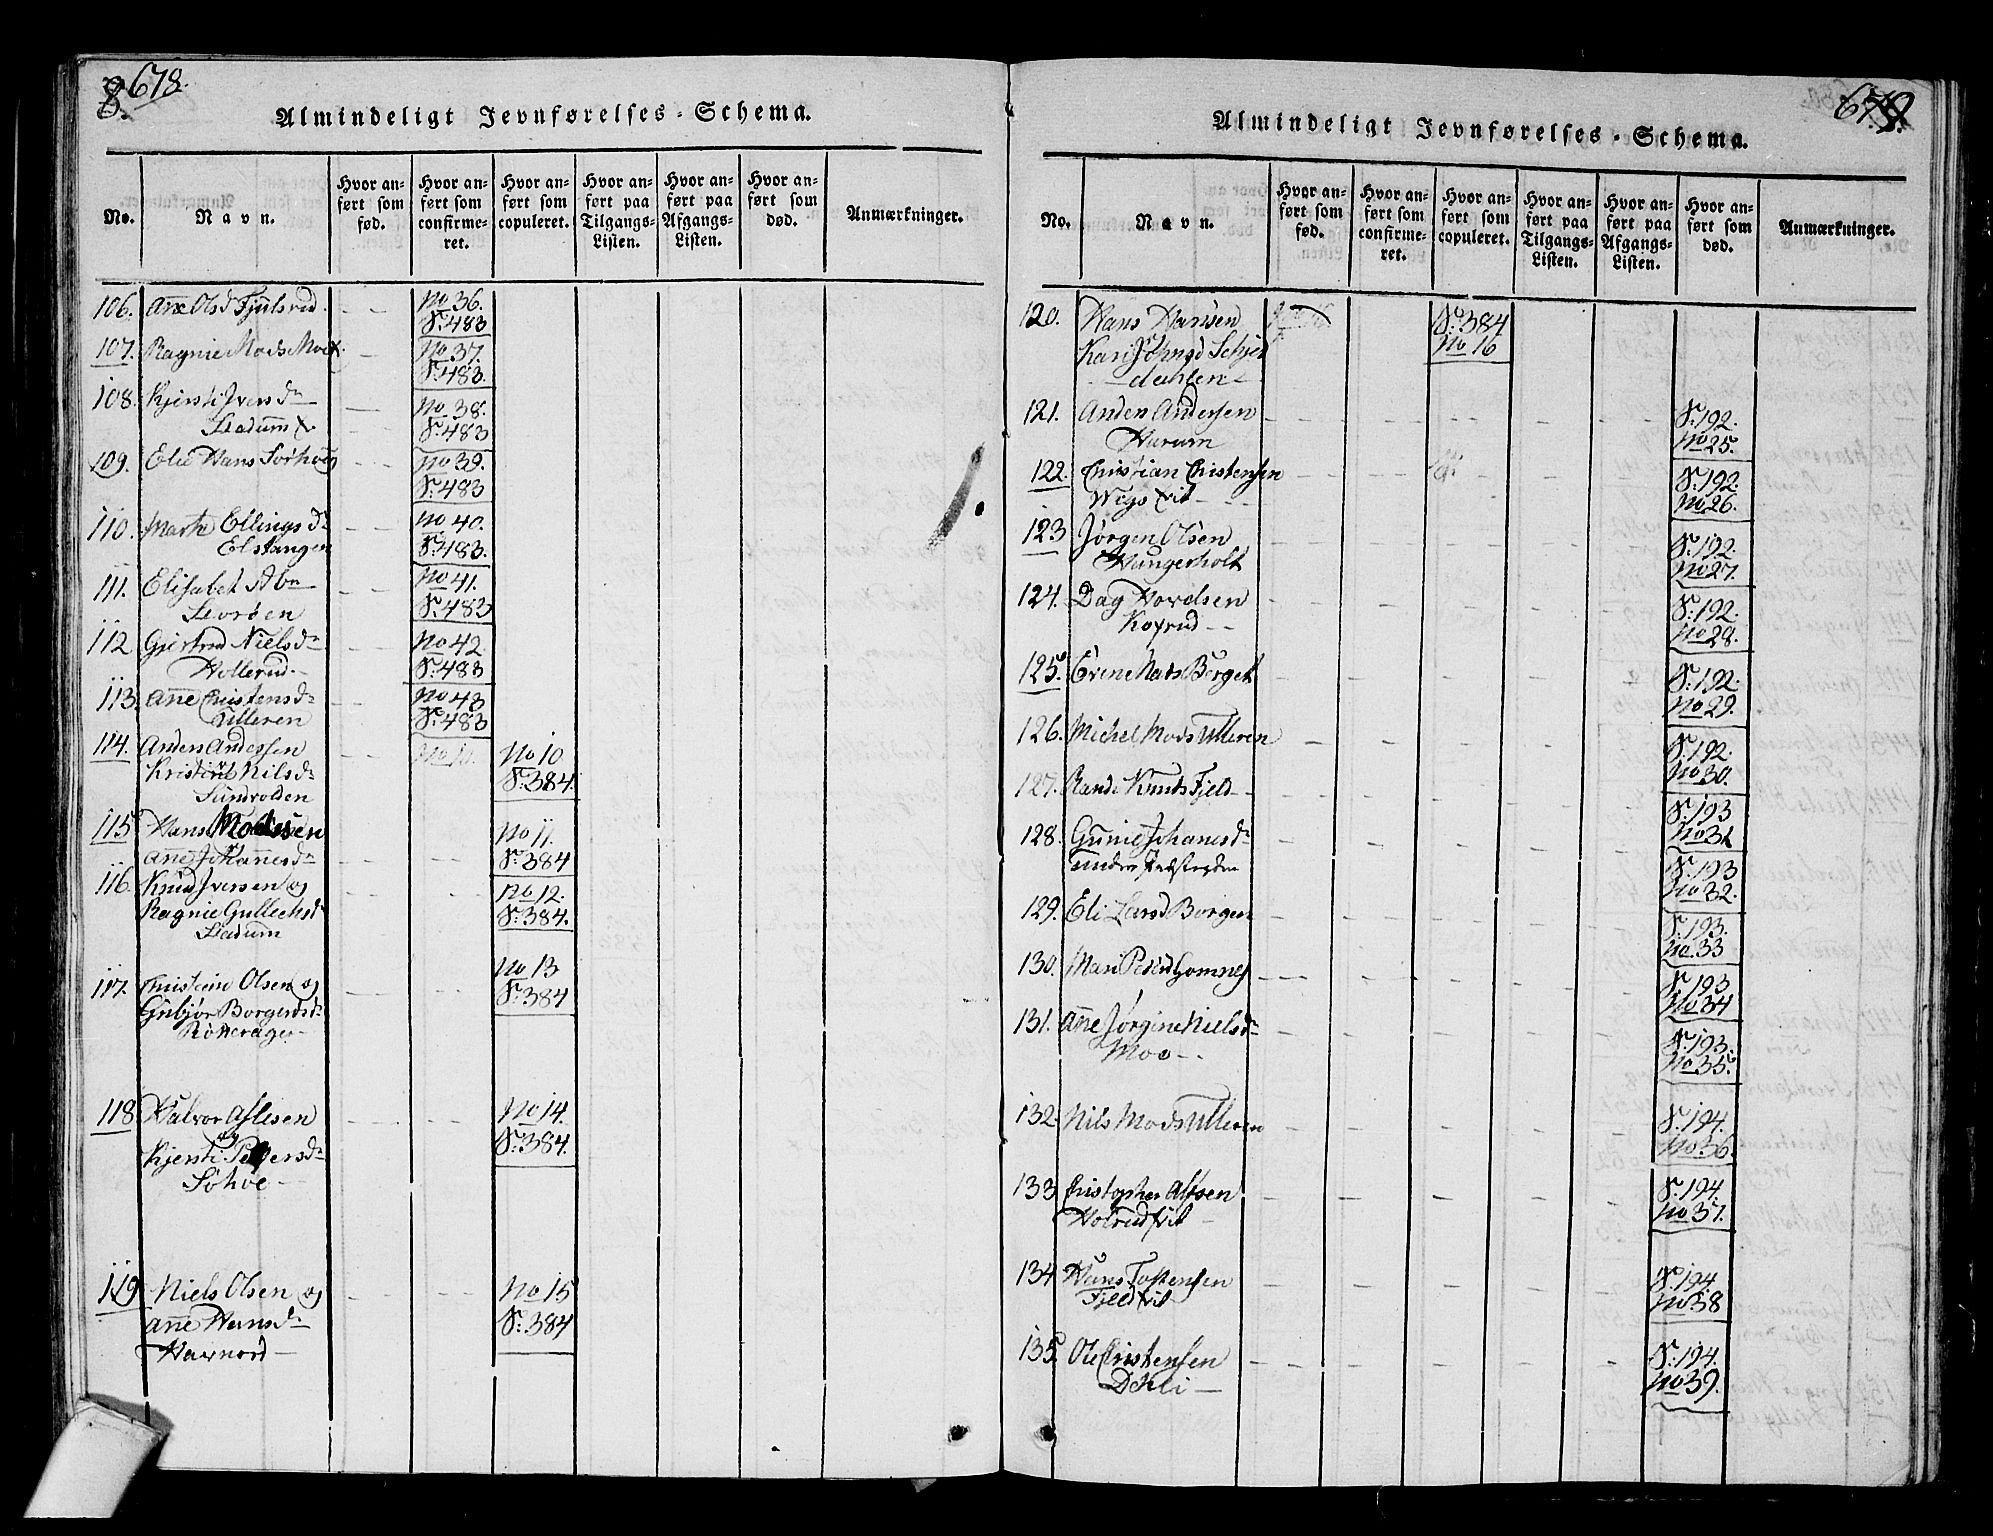 8. 678.
Almindeligt Jevnførelses-Schema.
No.
Navn.
Hvor anført som fød.
Hvor anført som confirmeret.
Hvor anført som copuleret.
Hvor anført paa Tilgangs-Listen.
Hvor anført paa Afgangs-Listen.
Hvor anført som død.
Anmærkninger.
106. Ane Olsd Fjulsrud - - No 36.
S. 483
107. Ragnie Mads Moe - No 37.
S. 483.
108. Kjersti Ivers dr - No 38.
Stadum - S. 483
109. Elie Hans Sørhoug - - No 39.
S. 483
110. Marthe Ellings dr - - No 40.
Elstangen S. 483.
111. Elisabet Abr - - No 41.
Storøen S. 483
112 Gjertrud Niels dr - - No 42
Hollerud - S. 483
113. Anne Christensdr - - No 43
Ulleren S. 483
114. Anders Andersen - - No 10. No 10
Kristine Nilsdr S. 384.
Sundvolden
115 Hans Madsen No 11.
Anne Johannesdr - - S. 384
116. Knud Iversen og - - No 12.
Ragnie Gullechsd S. 384.
Stadum
No 13
117. Christen Olsen og - - S. 384
Gubjør Borgersdr
Rotterager -
118. Halvor Aslesen - - No 14.
og S. 384.
Kjersti Pedersdr
Sohoe -
119 Niels Olsen og - - - No 15
Anne Hansdr S. 384
Havnord -
679.
Almindeligt Jevnførelses-Schema.
No.
Navn.
Hvor anført som fød.
Hvor anført som confirmeret.
Hvor anført som copuleret.
Hvor anført paa Tilgangs-Listen.
Hvor anført paa Afgangs-Listen.
Hvor anført som død.
Anmærkninger.
120. Hans Hansen S. 384
Kari Johnsd Schjer No 16
dahlen -
121. Anden Andersen - - - - - S. 192.
Hurum No 25.
122. Christian Christensen S. 192.
Wegs - No 26.
123 Jørgen Olsen - - - - - S. 192.
Hungerholt No 27.
124. Dag Hovelsen - - - - - S. 192.
Koxrud - - No 28.
125. Erene Mats Berget - - - - - S. 192.
No 29.
126. Michel Mads Ulleren - - - - - S. 192.
No 30.
127. Randi Knuts Fjeld - - - - - S. 193
No 31
128. Gunie Johanesdr - - - - - S. 193
under No 32.
129. Eli Larsd Borgen - - - - - S. 193.
No 33
130. Mari Pedersd Gomnes - - - - - S. 193
No 34
131. Anne Jørgine Nielsdr - - - - - S. 193.
Moe - - No 35.
132. Nils Mads Ulleren - - - - - S. 194.
No 36.
133 Christopher Alfsen - - - - - S. 194.
Holrud - No 37.
134 Hans Tostensen - - - - - S. 194
Fjeld No 38
135. Ole Christensen - - - - - S. 194.
Dehli - No 39.